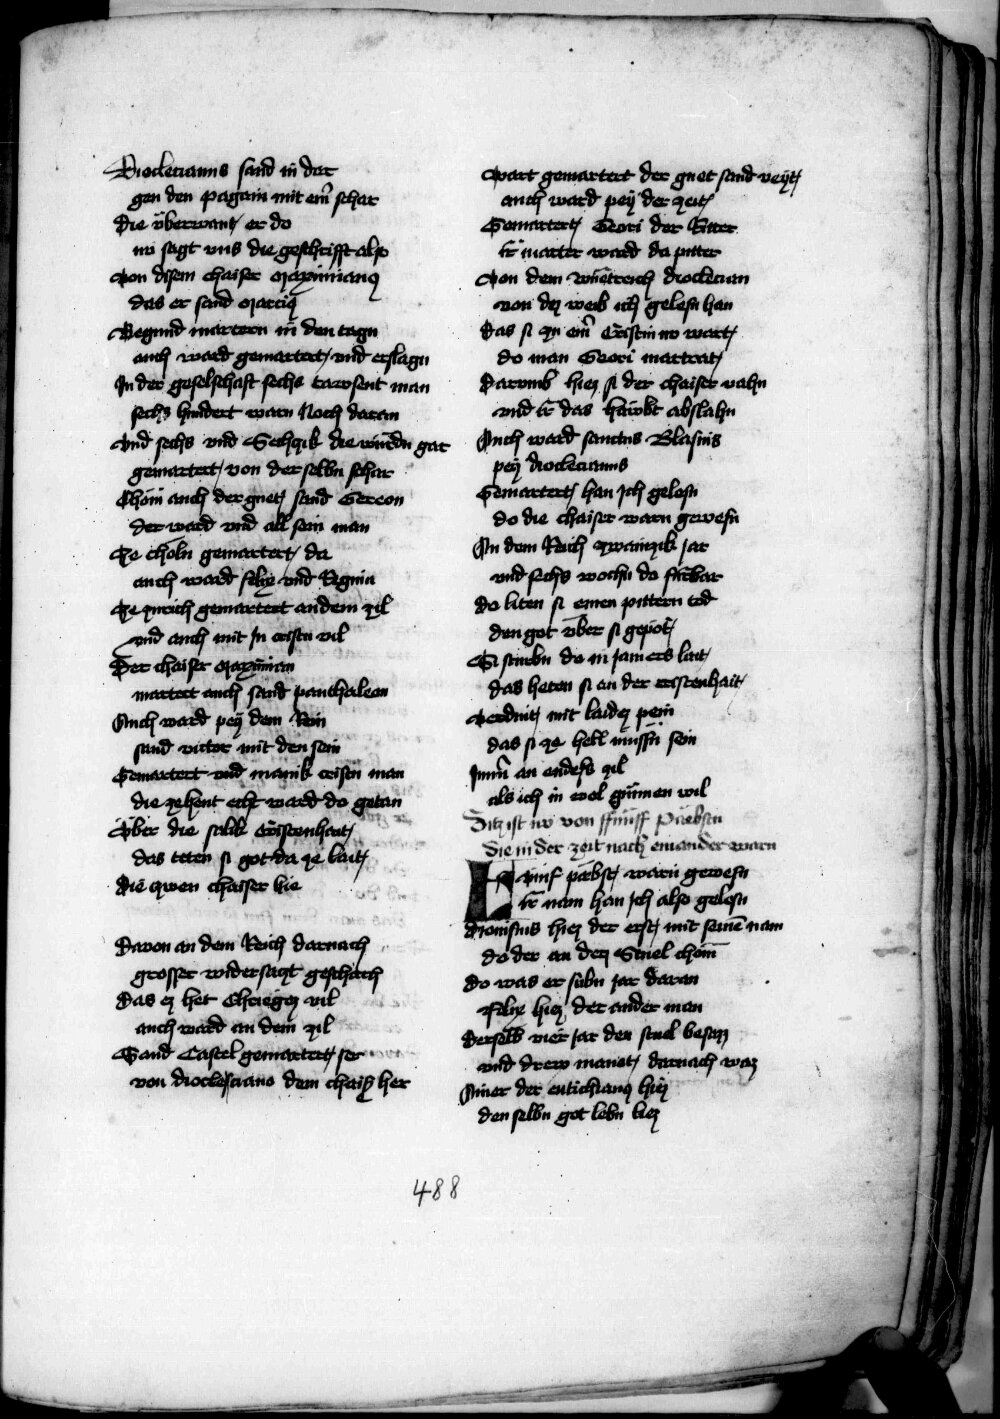 Dioclecianus sand in dar
gen den pagarin mit eim̄ schar
die v̈berwant er do
nv sagt vns die geschrifft also
von disem chaiser maximianus
das er sand Marcus
Begund martern in den tagn
auch ward gemartert vnd erslagn
In der geselschaft sechs tawsent man
sechs hundert warn Noch daran
vnd sechs vnd Sechczik die wurdn gar
gemartert von der selbn schar
Chom auch der guet sand Gereon
der ward vnd all sein man
Ze choln gemartert da
auch ward felix vnd Regula
Ze zurich gemartert an dem zil
vnd auch mit In cristn vil
Der chaiser Maximian
martert auch sand panthaleon
Auch ward pey dem Rein
sand victor mit den sein
Gemartert vnd manik cristen man
die zehent echt ward do getan
V̈ber die salik Cristenhait
das teten si got da ze lait
die zwen chaiser hie
Davon an dem Reich darnach
grosser widersaczt geschach
das er het Chrieger vil
auch ward an dem zil
Sand Castel gemartert ser
von dioclesciano dem chaiser her
Wart gemartert der guet sand veÿt
auch ward peÿ der zeit
Gemartert Geori der Ritter
Er marter ward da pitter
Von dem wuetreich dioclecian
von dez weib ich gelesn han
das si zu eim̄ Cristin wart
do man Geori martrat
Darumb hiez si der chaiser vahn
vnd ir das hawbt abslahn
Auch ward sanctus Blasius
peÿ dioclecianus
Gemartert han Ich gelesn
do die chaiser warn gewesn
An dem Reich zwainczik Jar
vnd sechs wochn do furbar
do liten si einen pittern tod
den got v̈ber si gepot
Si sturbn do in Jamers lait
das heten si an der cristenhait
verdint mit laidez pein
das si ze hell mussn sein
Imm̄ an endes zil
als ich in wol gunnen wil
Ditz ist nv von ffunff Pabstn
die in der zeit nach einander warn
Fvinf pabst warn gewesn
Er nam han Ich also gelesn
Dionisius hiez der erst mit seinē nam
do der an den Stuel chom
do was er subn Jar daran
Felix hiez der ander man
derselb vier Jar den stuel besazz
vnd drew manat darnach waz
Ainer der eutichianus hiez
den selbn got lebn liez
488